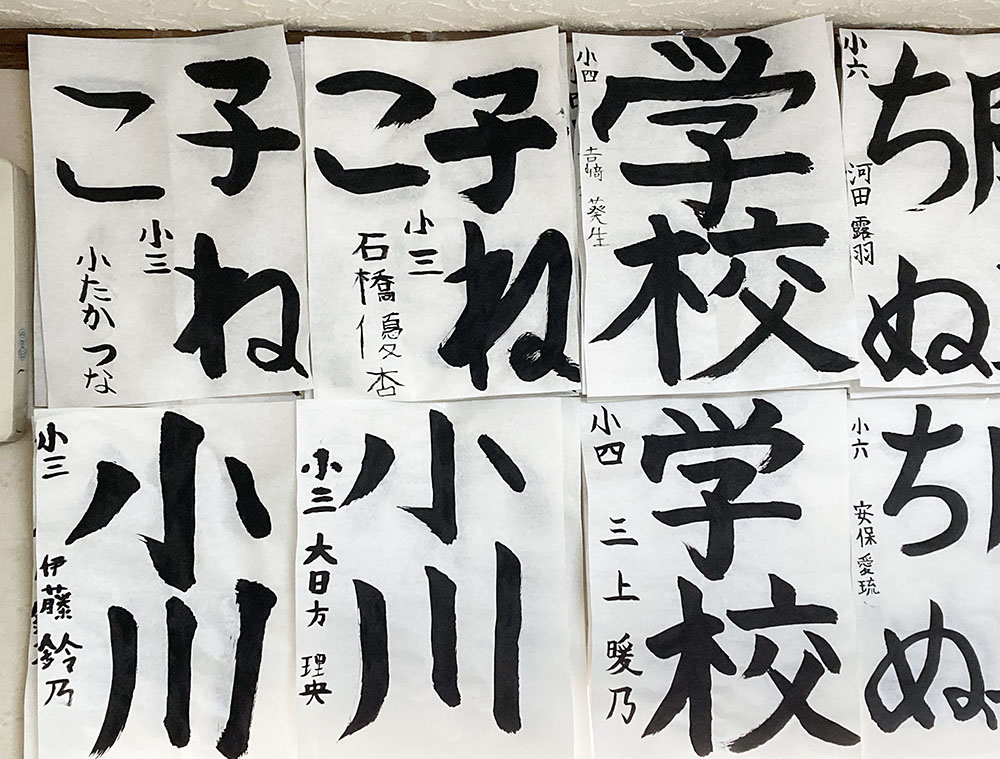 子ね
こ
小三
小たか つな
子ね
こ
小三
石橋 優杏
学校
小四
吉﨑 葵生
ち
ぬ
小六
河田 露羽
小川
小三
伊藤 鈴乃
小川
小三 大日方 理央
学校
小四 三上 暖乃
ち
ぬ
小六 安保 愛琉